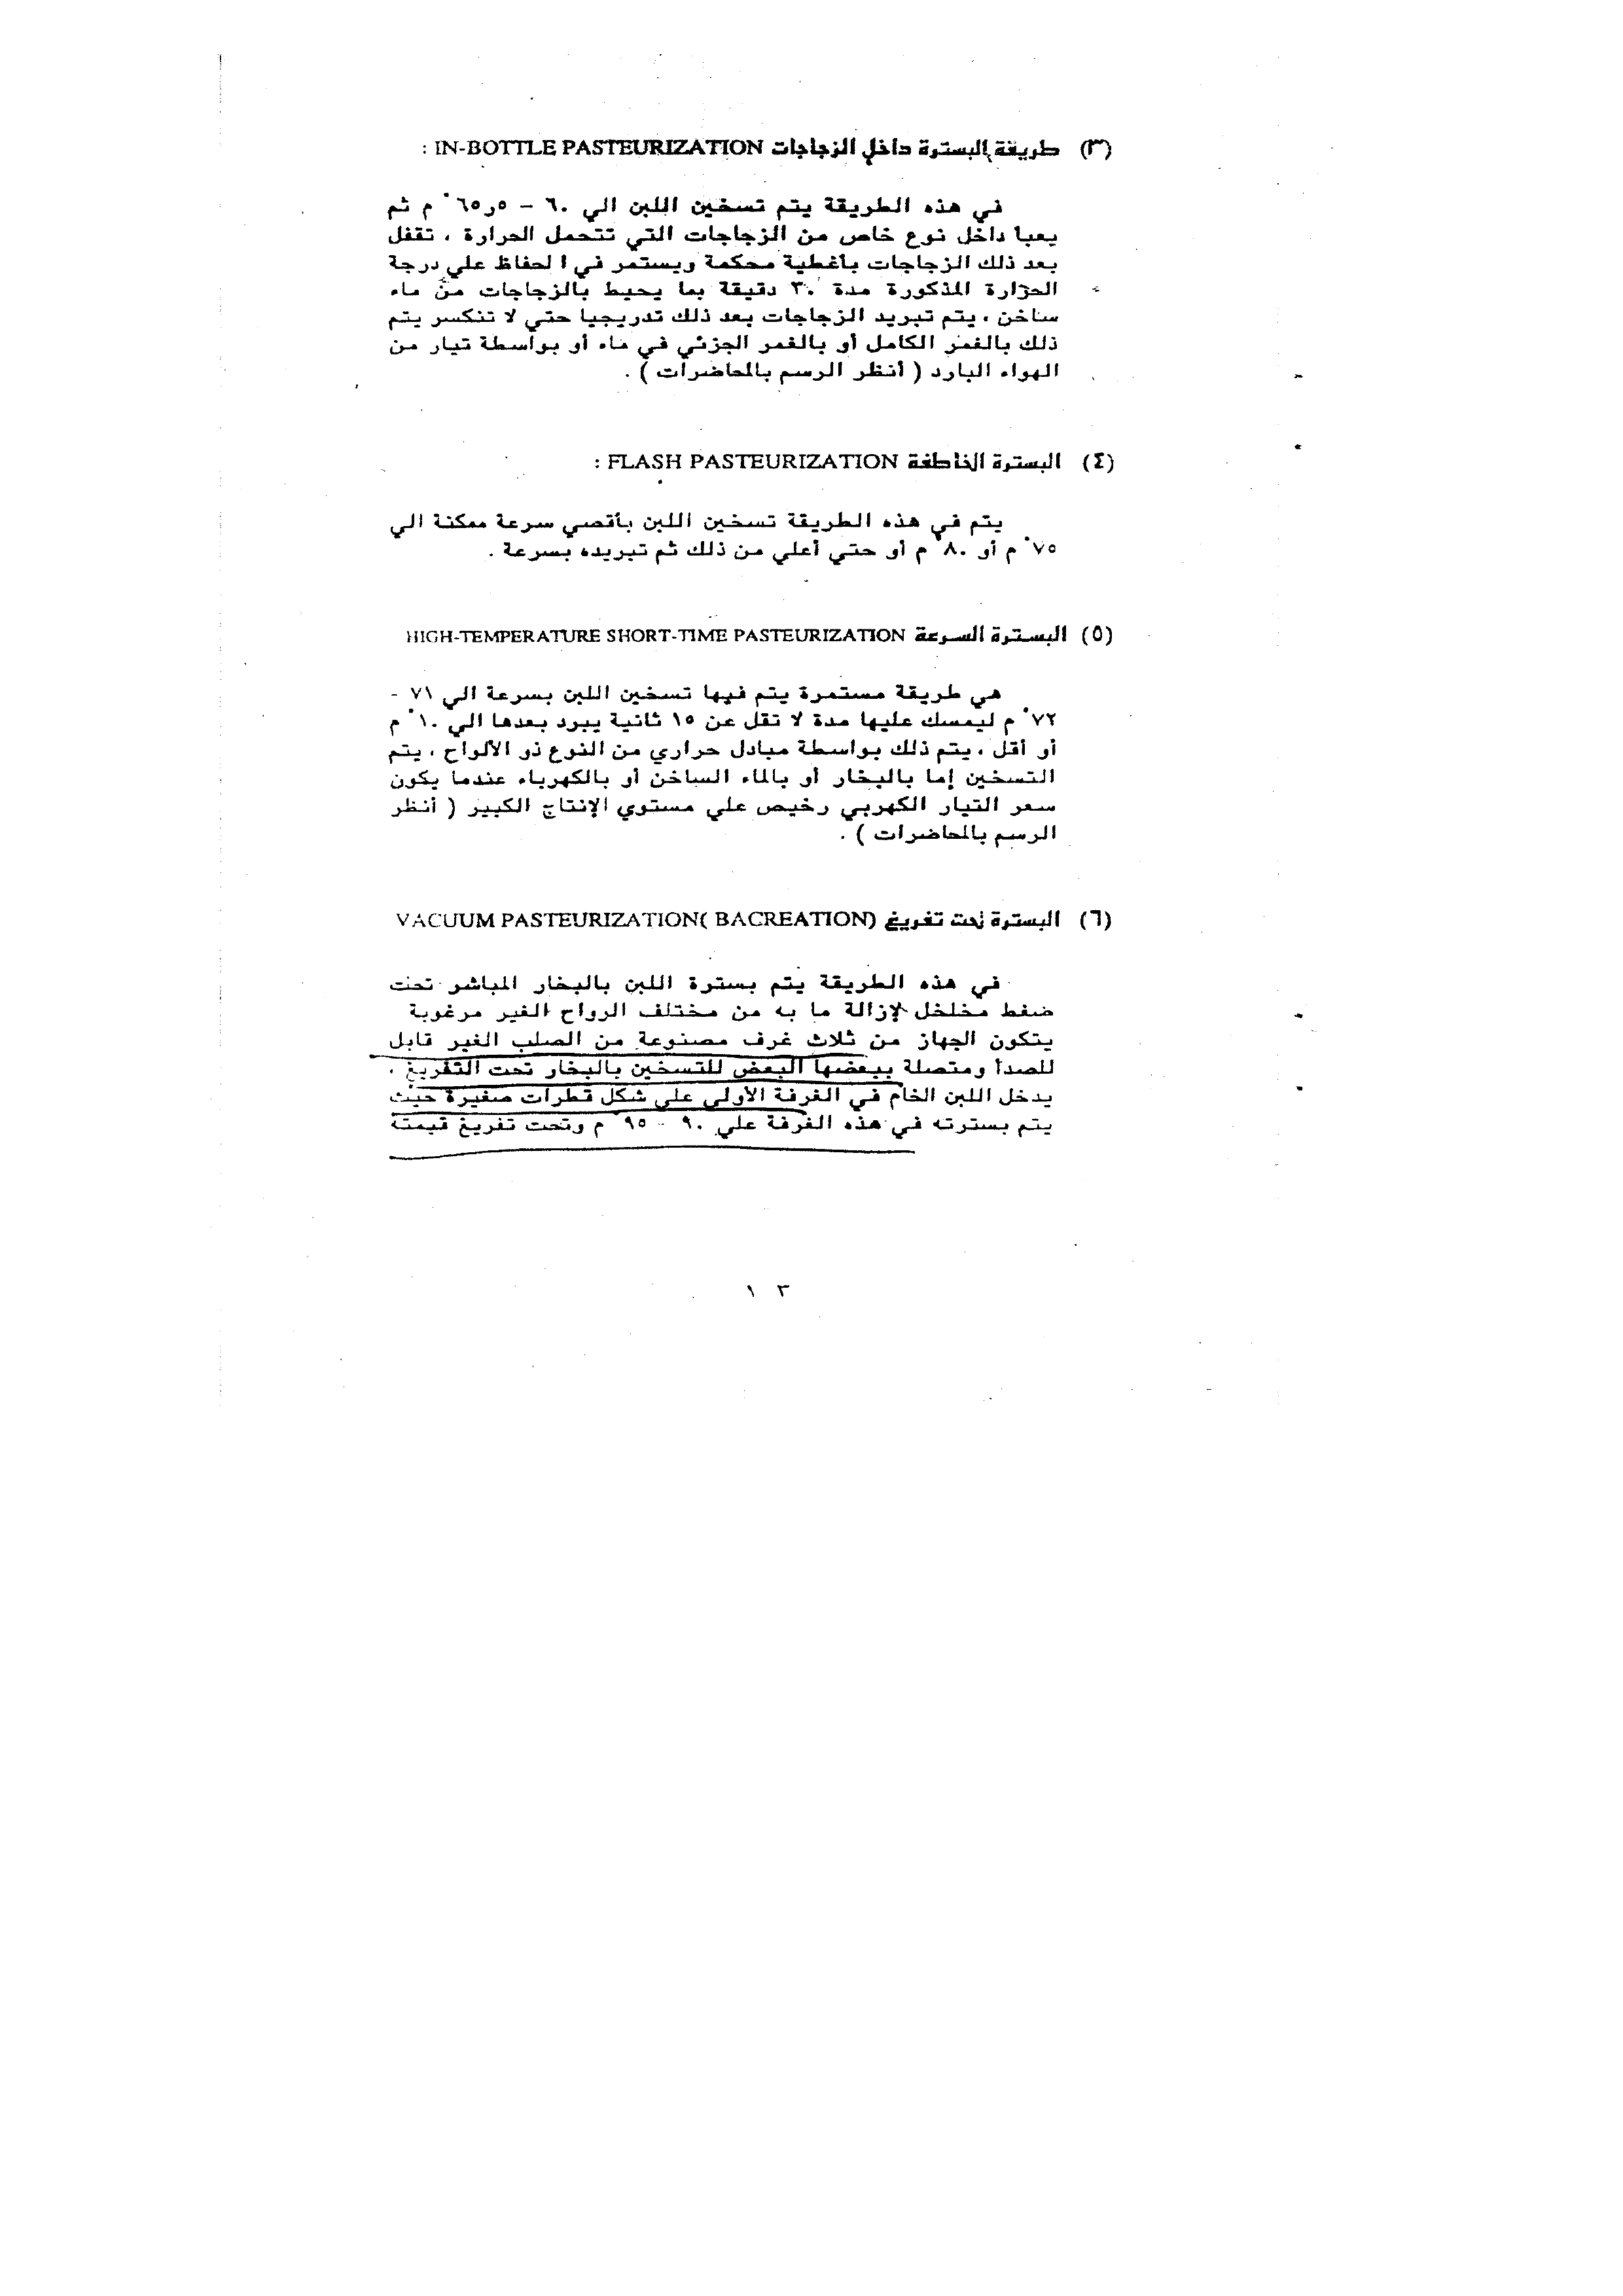 (٣) طريقة البسترة داخل الزجاجات IN-BOTTLE PASTEURIZATION :
في هذه الطريقة يتم تسخين اللبن الي ٦٠ - ٦٥٫٥° م ثم
يعبأ داخل نوع خاص من الزجاجات التي تتحمل الحرارة ، تقفل
بعد ذلك الزجاجات بأغطية محكمة ويستمر في الحفاظ علي درجة
الحرارة المذكورة مدة ٣٠ دقيقة بما يحيط بالزجاجات من ماء
ساخن ، يتم تبريد الزجاجات بعد ذلك تدريجيا حتي لا تنكسر يتم
ذلك بالغمر الكامل أو بالغمر الجزئي في ماء أو بواسطة تيار من
الهواء البارد ( أنظر الرسم بالمحاضرات ) .
(٤) البسترة الخاطفة FLASH PASTEURIZATION :
يتم في هذه الطريقة تسخين اللبن بأقصي سرعة ممكنة الي
٧٥° م أو ٨٠° م أو حتي أعلي من ذلك ثم تبريده بسرعة .
(٥) البسترة السرعة HIGH-TEMPERATURE SHORT-TIME PASTEURIZATION
هي طريقة مستمرة يتم فيها تسخين اللبن بسرعة الي ٧١ -
٧٢° م ليمسك عليها مدة لا تقل عن ١٥ ثانية يبرد بعدها الي ١٠° م
أو أقل ، يتم ذلك بواسطة مبادل حراري من النوع ذو الألواح ، يتم
التسخين إما بالبخار أو بالماء الساخن أو بالكهرباء عندما يكون
سعر التيار الكهربي رخيص علي مستوي الإنتاج الكبير ( أنظر
الرسم بالمحاضرات ) .
(٦) البسترة تحت تفريغ VACUUM PASTEURIZATION( BACREATION)
في هذه الطريقة يتم بسترة اللبن بالبخار المباشر تحت
ضغط مخلخل لإزالة ما به من مختلف الرواح الغير مرغوبة
يتكون الجهاز من ثلاث غرف مصنوعة من الصلب الغير قابل
للصدأ ومتصلة ببعضها البعض للتسخين بالبخار تحت التفريغ ،
يدخل اللبن الخام في الغرفة الأولي علي شكل قطرات صغيرة حيث
يتم بسترته في هذه الغرفة علي ٩٠ - ٩٥° م وتحت تفريغ قيمتة
١٣